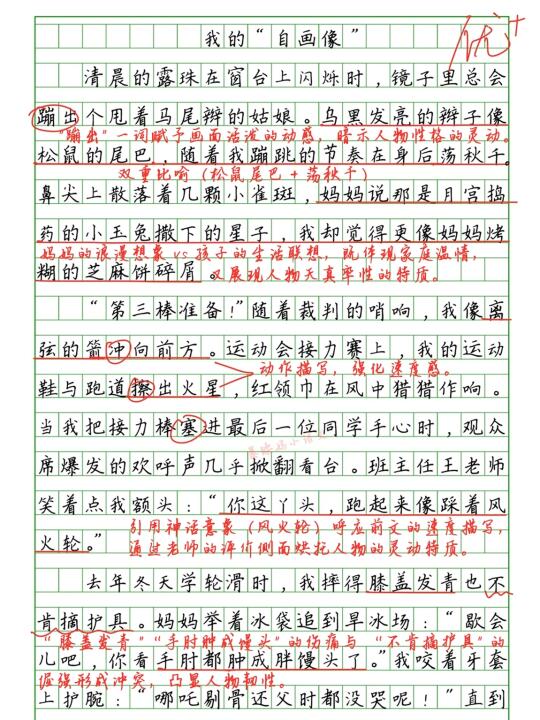 我的“自画像”
优+
清晨的露珠在窗台上闪烁时，镜子里总会
蹦出个甩着马尾辫的姑娘。乌黑发亮的辫子像
“蹦出”一词赋予画面活泼的动感，暗示人物性格的灵动。
松鼠的尾巴，随着我蹦跳的节奏在身后荡秋千。
双重比喻（松鼠尾巴+荡秋千）
鼻尖上散落着几颗小雀斑，妈妈说那是月宫捣
药的小玉兔撒下的星子，我却觉得更像妈妈烤
妈妈的浪漫想象vs孩子的生活联想，既体现家庭温情，
糊的芝麻饼碎屑。
又展现人物天真率性的特质。
“第三棒准备！”随着裁判的哨响，我像离
弦的箭冲向前方。运动会接力赛上，我的运动
动作描写，强化速度感。
鞋与跑道擦出火星，红领巾在风中猎猎作响。
当我把接力棒塞进最后一位同学手心时，观众
席爆发的欢呼声几乎掀翻看台。班主任王老师
笑着点我额头：“你这丫头，跑起来像踩着风
引用神话意象（风火轮）呼应前文的速度描写，
火轮。”
通过老师的评价侧面烘托人物的灵动特质。
去年冬天学轮滑时，我摔得膝盖发青也不
肯摘护具。妈妈举着冰袋追到旱冰场：“歇会
“膝盖发青”“手肘肿成馒头”的伤痛与“不肯摘护具”的
儿吧，你看手肘都肿成胖馒头了。”我咬着牙套
倔强形成冲突，凸显人物韧性。
上护腕：“哪吒剔骨还父时都没哭呢！”直到